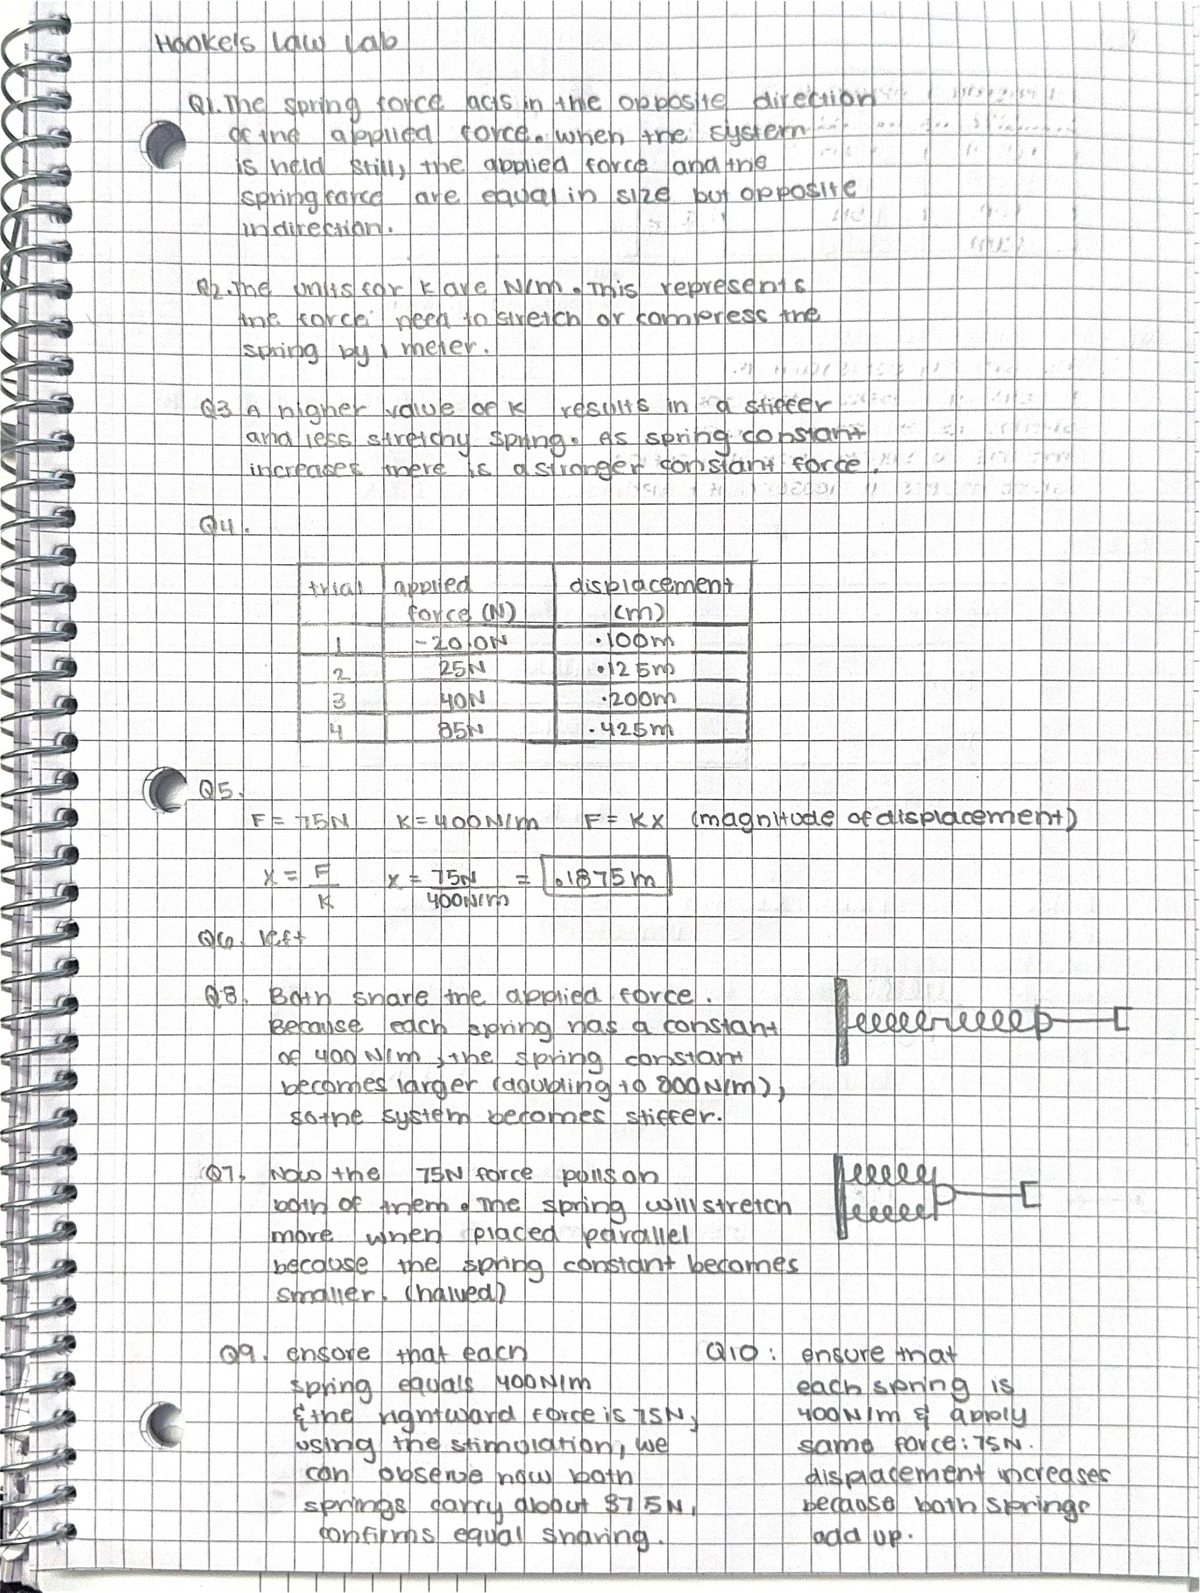 Hooke's Law Lab
Q1. The spring force acts in the opposite direction
of the applied force. when the system
is held still, the applied force and the
spring force are equal in size but opposite
in direction.
Q2. The units for K are N/m. This represents
the force need to stretch or compress the
spring by 1 meter.
Q3 A higher value of K results in a stiffer
and less stretchy spring. As spring constant
increases there is a stronger constant force.
Q4.
trial applied force (N) displacement (m)
1 -20.0N .100m
2 25N .125m
3 40N .200m
4 85N .425m
Q5.
F = 75N K = 400N/m F = KX (magnitude of displacement)
X = F/K X = 75N/400N/m = .1875m
Q6. left
Q8. Both share the applied force.
Because each spring has a constant
of 400 N/m, the spring constant
becomes larger (doubling to 800N/m),
so the system becomes stiffer.
Q7. Now the 75N force pulls on
both of them. The spring will stretch
more when placed parallel
because the spring constant becomes
smaller. (halved)
Q9. ensure that each
spring equals 400N/m
& the rightward force is 75N,
using the stimulation, we
can observe how both
springs carry about 37.5N,
confirms equal sharing.
Q10: ensure that
each spring is
400N/m & apply
same force: 75N.
displacement increases
because both springs
add up.